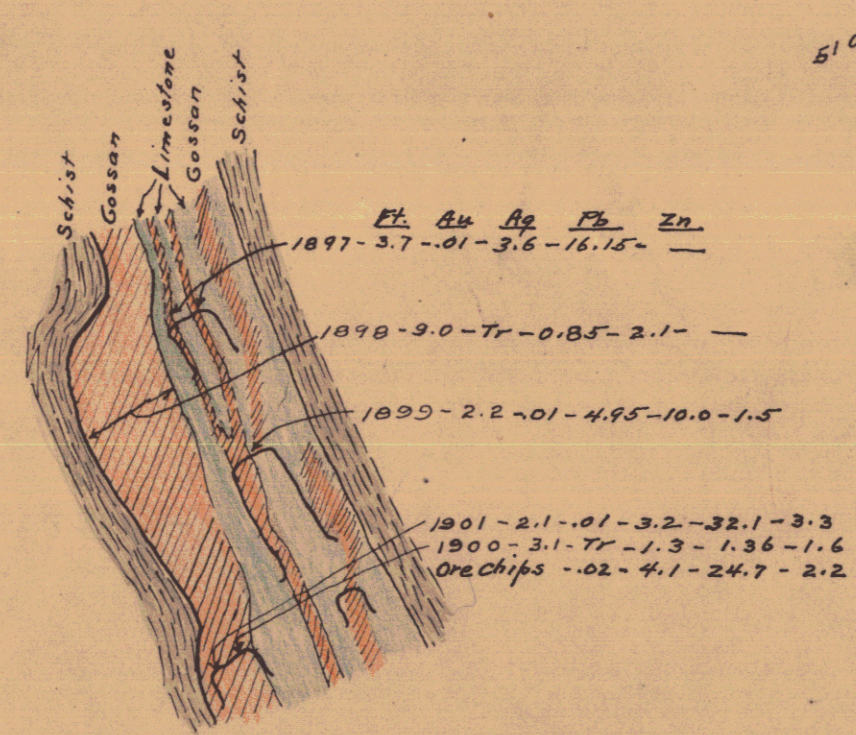 510
Schist
Gossan
Limestone
Gossan
Schist
Ft. Au Ag Pb Zn
1897 - 3.7 - .01 - 3.6 - 16.15 - —
1898 - 9.0 - Tr - 0.85 - 2.1 - —
1899 - 2.2 - .01 - 4.95 - 10.0 - 1.5
1901 - 2.1 - .01 - 3.2 - 32.1 - 3.3
1900 - 3.1 - Tr - 1.3 - 1.36 - 1.6
Ore Chips - .02 - 4.1 - 24.7 - 2.2